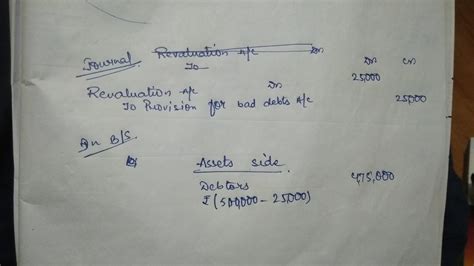 Journal Revaluation A/c Dr
To
Dr Cr
Revaluation A/c Dr 25,000
To Provision for bad debts A/c 25,000
In B/S
Assets side
Debtors 475,000
₹ (500,000 - 25,000)